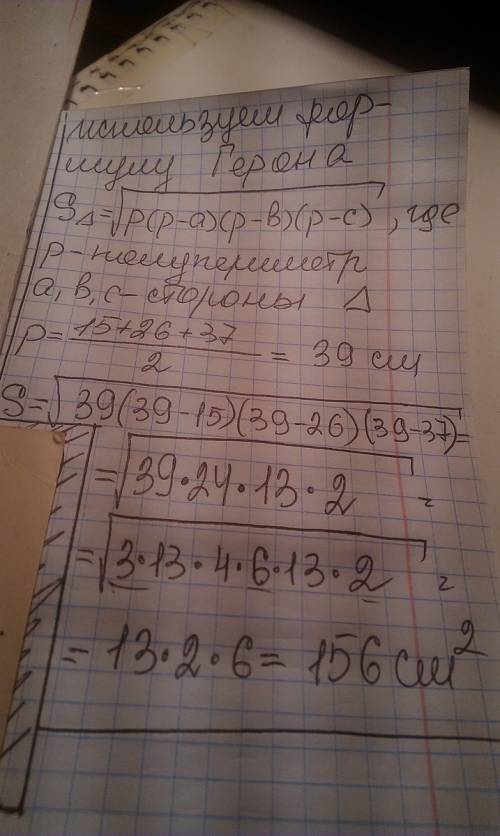 используем фор-
мулу Герона
S△=√p(p-a)(p-в)(p-c), где
p-полупериметр
a, в, c-стороны △
p=15+26+37/2 = 39 см
S=√39(39-15)(39-26)(39-37)=
=√39·24·13·2 =
=√3·13·4·6·13·2 =
=13·2·6=156 см²